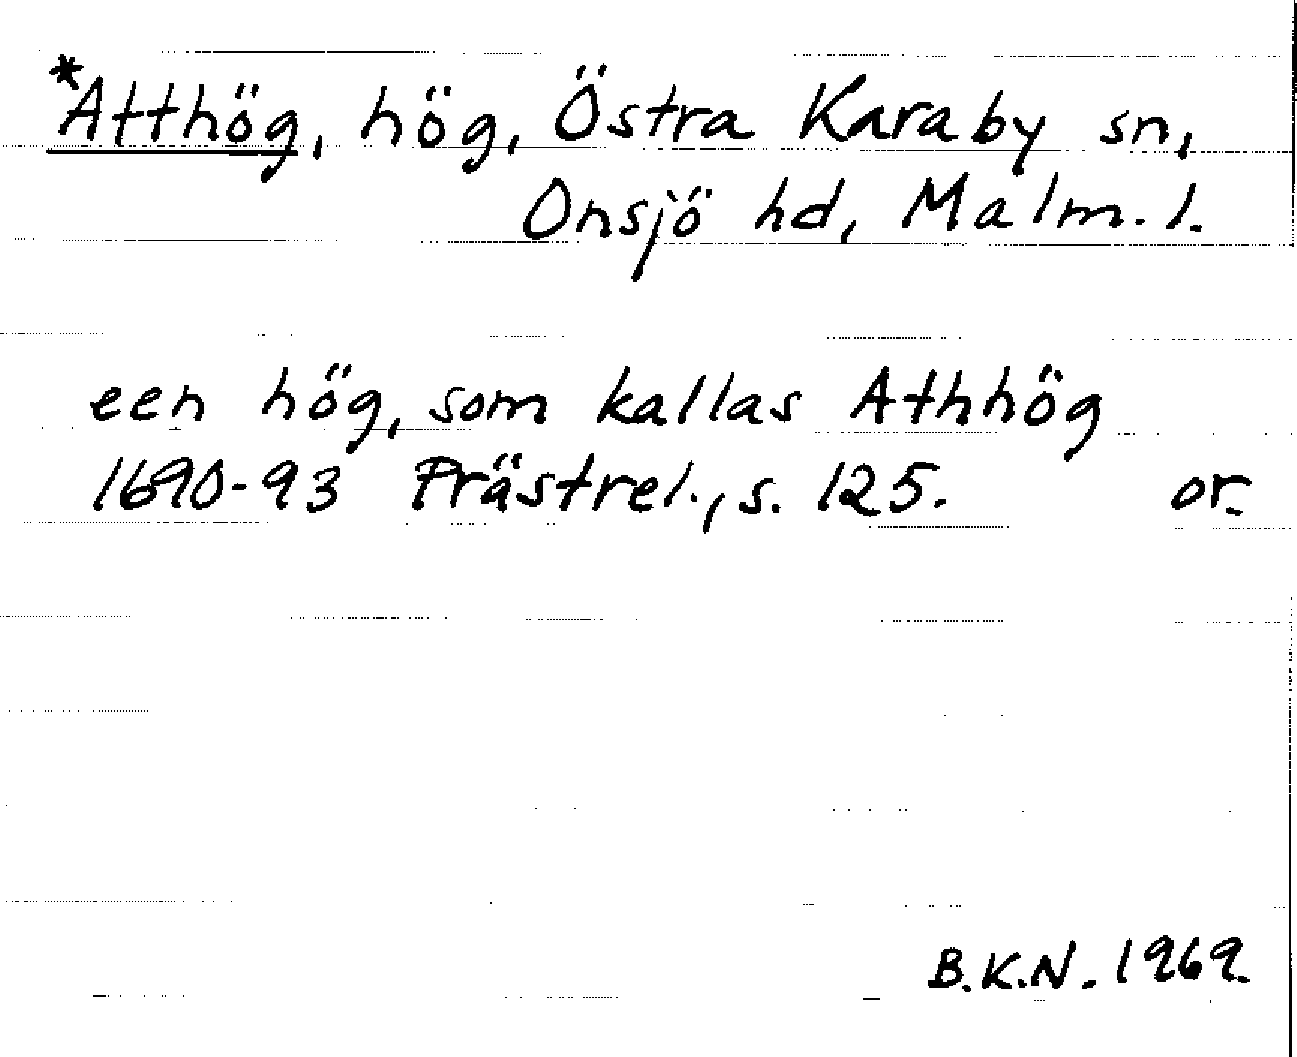 *Atthög, hög, Östra Karaby sn,
Onsjö hd, Malm. l.
een hög, som kallas Athhög
1690-93 Prästrel., s. 125. or.
B.K.N. 1969.